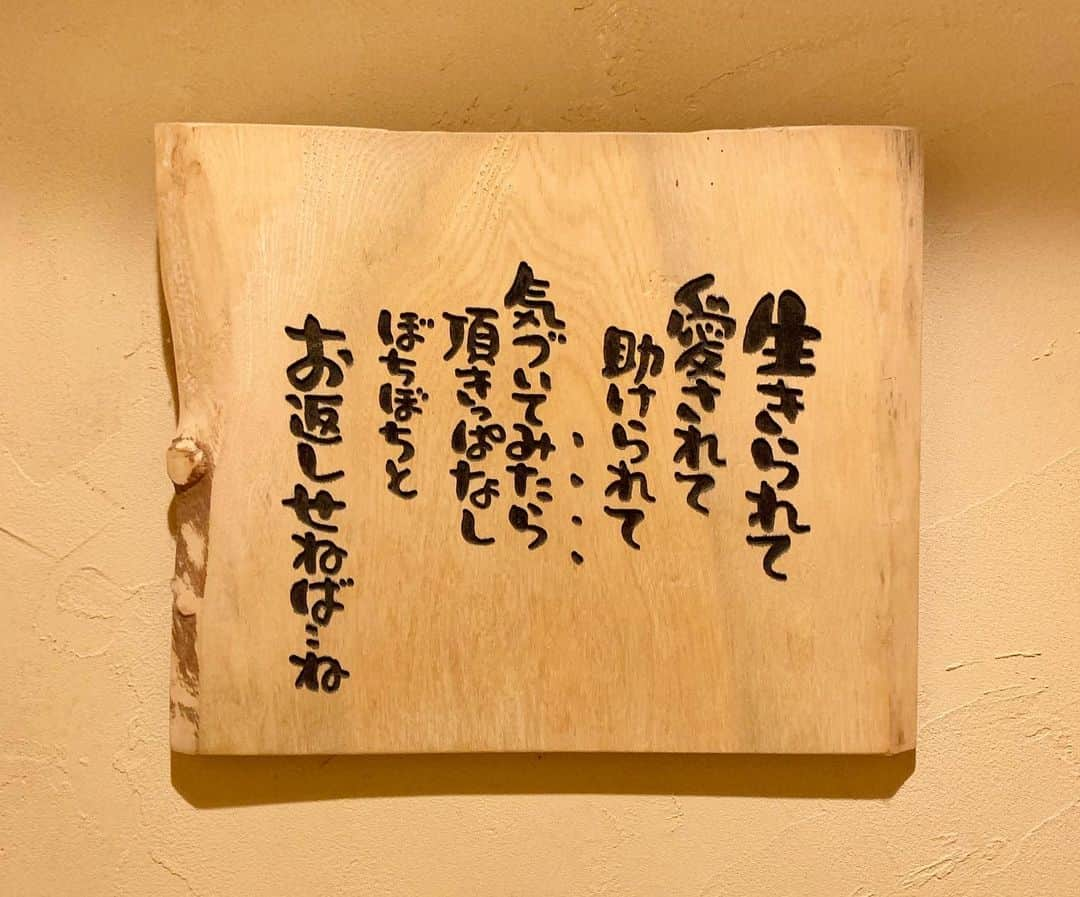 生きられて
愛されて
助けられて
・・・・
気づいてみたら
頂きっぱなし
ぼちぼちと
お返しせねば‥ね